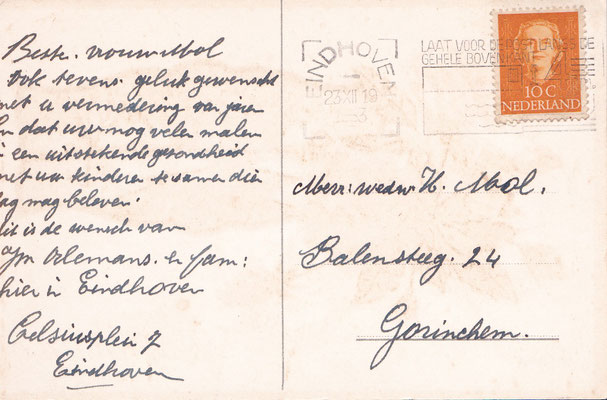 Beste. vrouw Mol
Ook tevens. geluk gewenscht
met u vermeerdering van jaren
en dat u nog velen malen
in een uitstekende gezondheid
met uw kinderen te samen dien
dag mag beleven.
dit is de wensch van
Orlemans. en fam:
hier in Eindhoven
Celsiusplein 7
Eindhoven
EINDHOVEN
23 XII 19
53
LAAT VOOR DE POST LANGS DE
GEHELE BOVENKANT
10 C
NEDERLAND
Mevr: wedw. H. Mol.
Balensteeg. 24
Gorinchem.